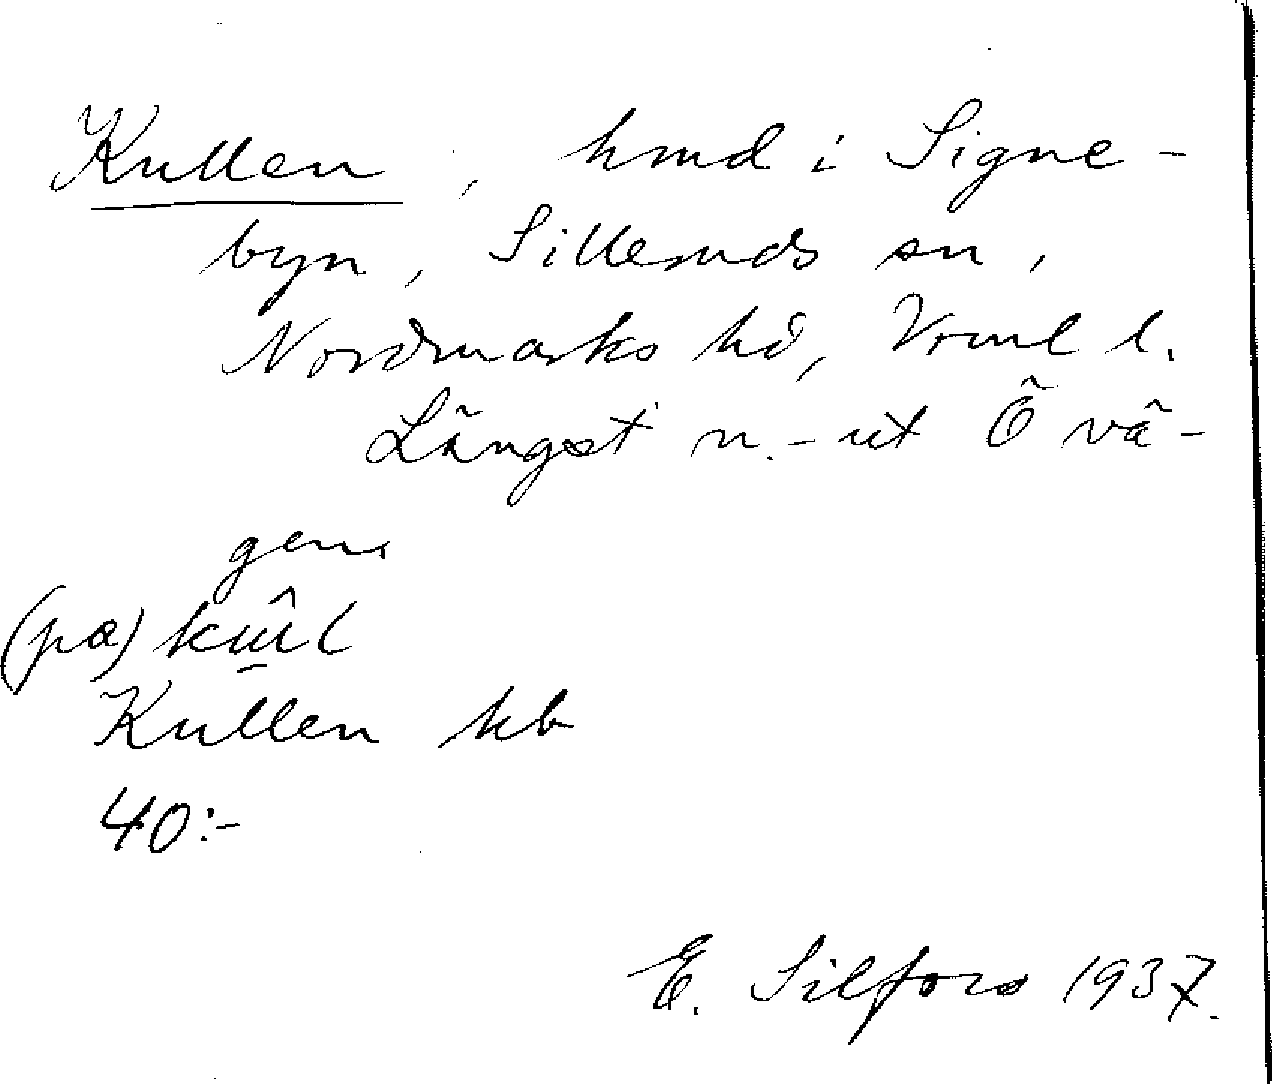 Kullen, hmd i Signe-
byn, Silleruds sn,
Nordmarks hd, Vrml l.
Längst n.-ut Ö vä-
gen.
(pa)
Kullen kb
40:-
E. Silfors 1937.